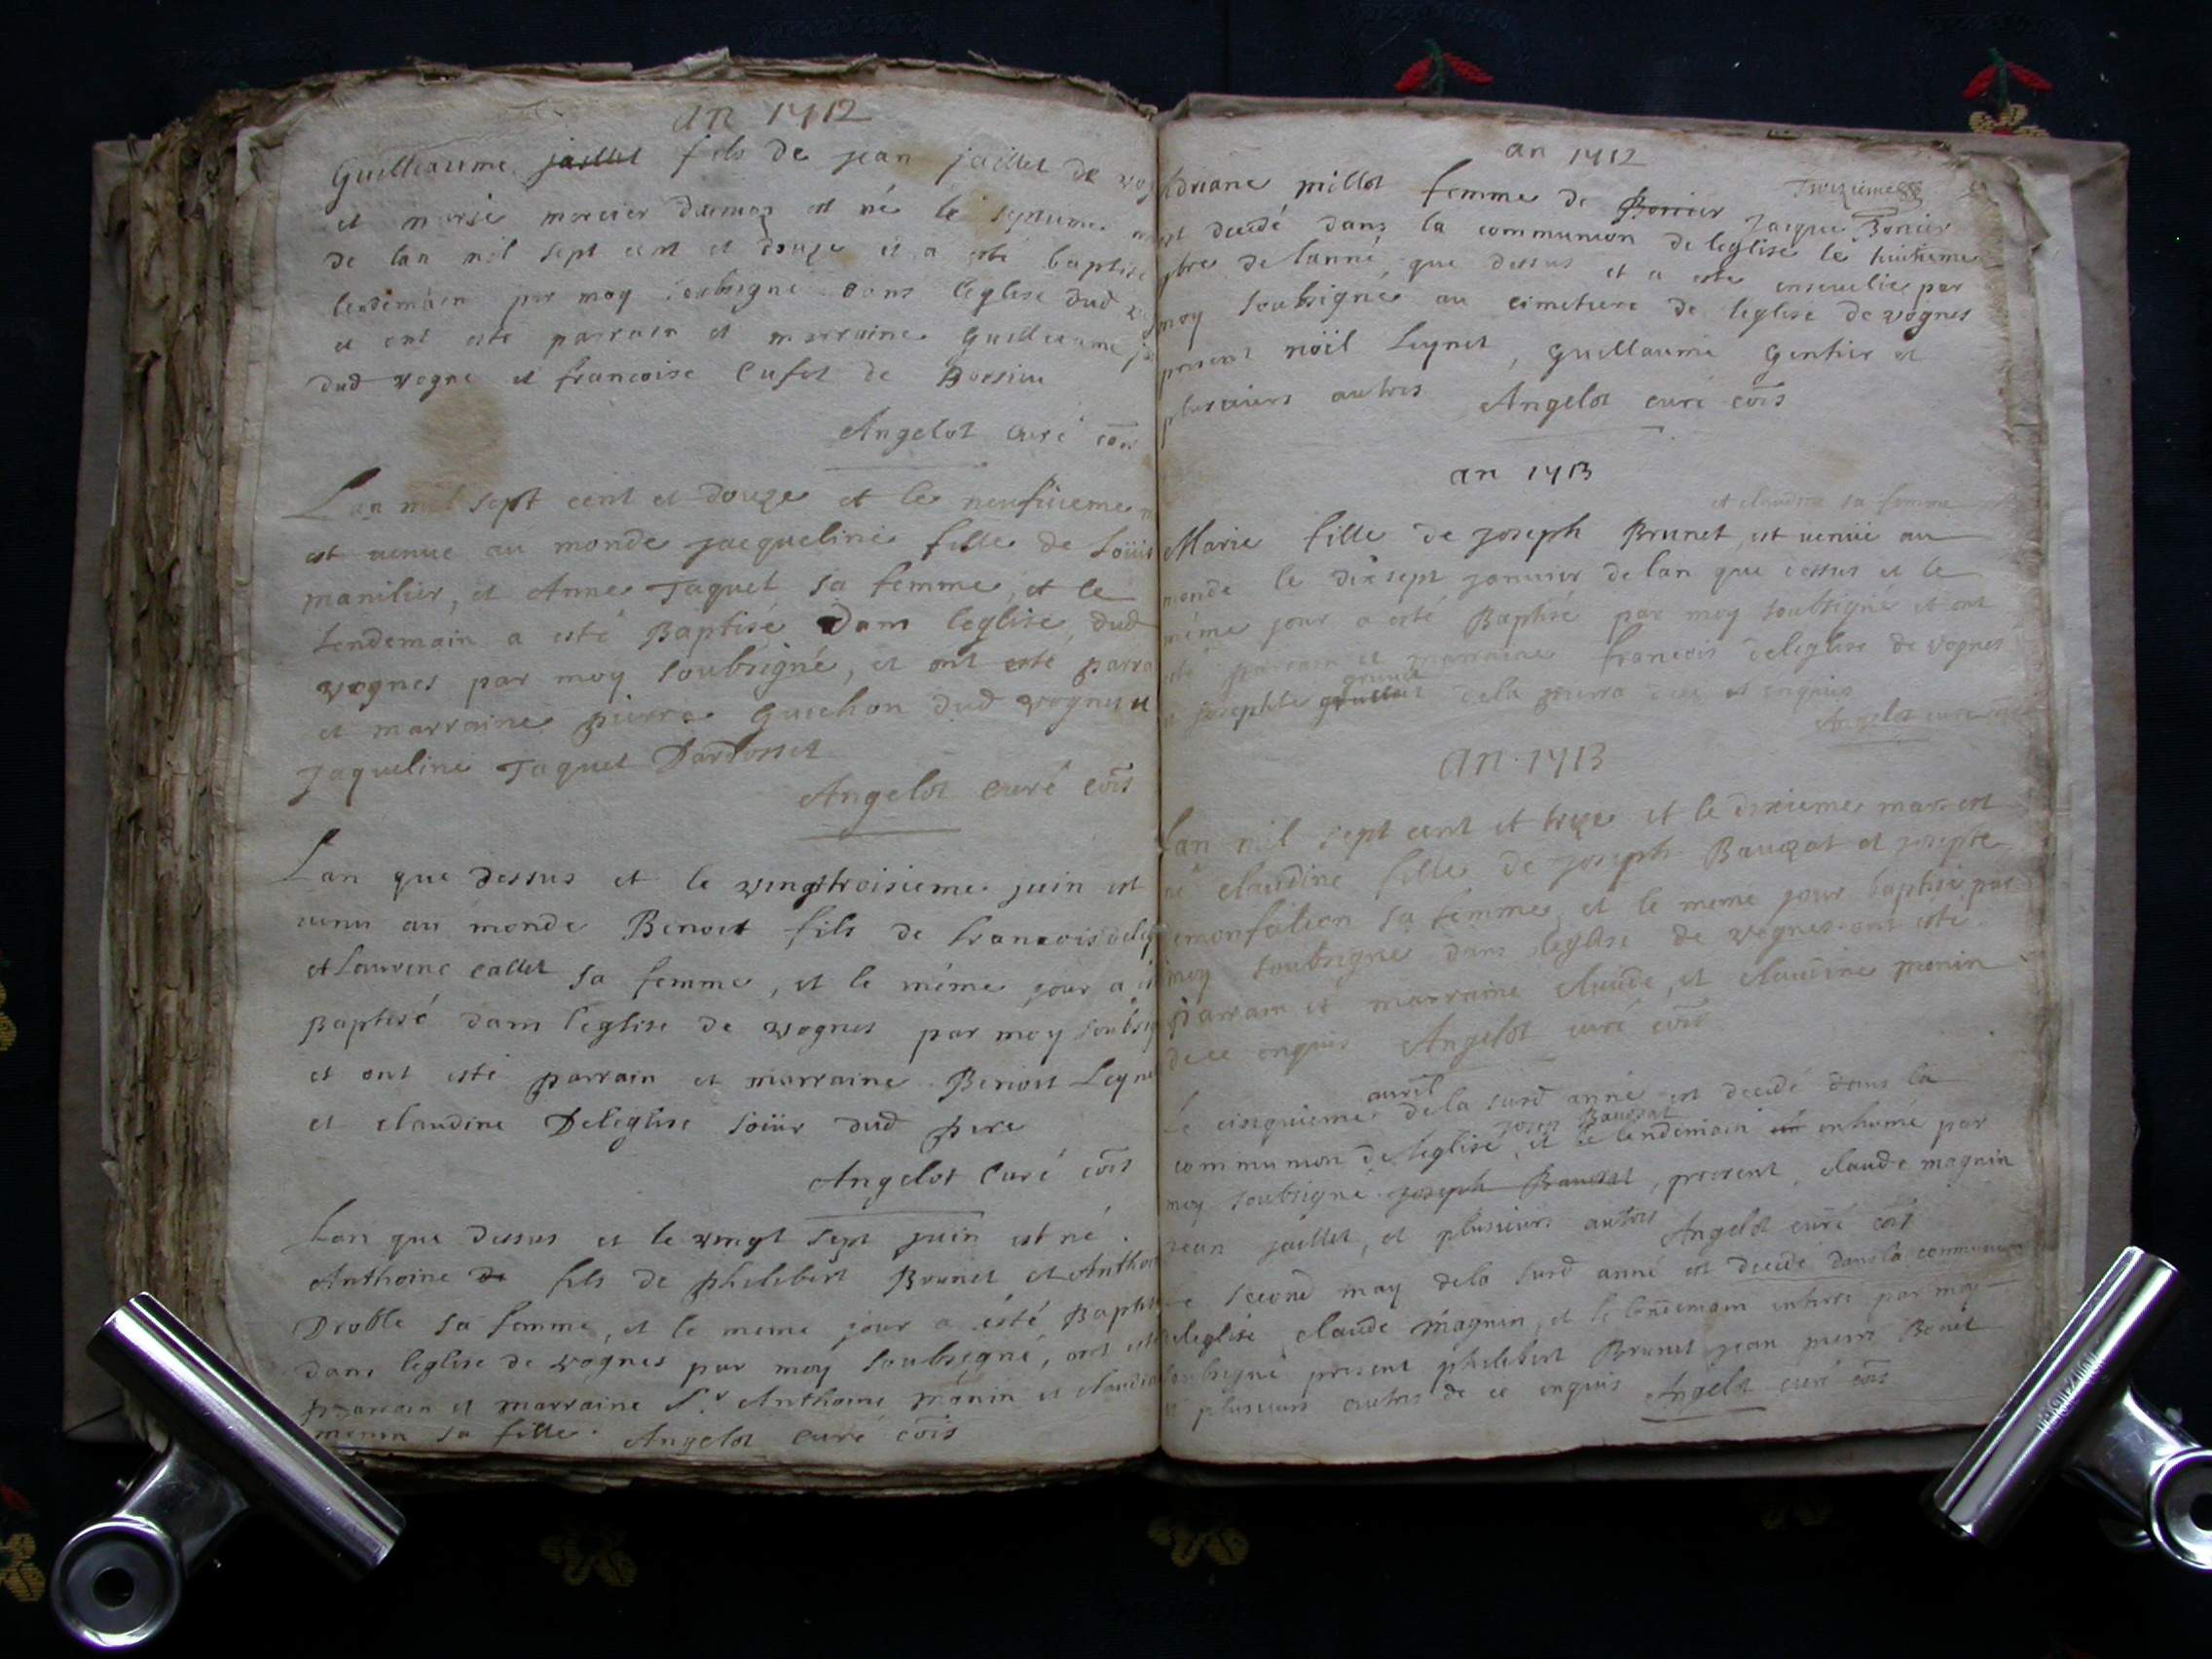 an 1712
Guilleaume jaillet fils de jean jaillet de
et marie mercier est né le septieme
de lan mil sept cent et douze et a esté baptisé
lendemain par moy soubsigné dans leglise dud
et ont esté parrain et marraine Guilleaume
dud vogne et francoise Cufet de Dorsieu
Angelot curé
Lan mil sept cent et douze et le neufvieme
est venue au monde jacqueline fille de Loüis
manilier, et Anne Taquet sa femme, et le
lendemain a esté Baptisé Dans leglise, dud
vognes par moy soubsigné, et ont esté parra
et marraine pierre Guichon dud vognes et
Jaqueline Taquet Dardosset
Angelot curé cois
Lan que dessus et le vingttroisieme juin est
venu au monde Benoist fils de francois
et Laurence callet sa femme, et le méme jour a
Baptisé dans l'eglise de vognes par moy soubsig
et ont esté parrain et marraine Benoist Leyne
et claudine Deleglise soeur dud pere
Angelot Curé cois
Lan que dessus et le vingt sept juin est né
Anthoine de fils de philibert Brunet et Antho
Droble sa femme, et le meme jour a esté Baptis
dans leglise de vognes par moy soubsigné, ont esté
parrain et marraine Sr Anthoine monin et claudin
monin sa fille. Angelot curé cois
an 1712
Adriane millot femme de Bonier Jaque Bonier
Treizieme
est decedé dans la communion de leglise le huitieme
bre de lanné que dessus et a esté ensevelie par
moy soubsigné au cimetiere de leglise de vognes
present nöil Leynet, Guillaume Gentier et
plusieurs autres Angelot curé cois
an 1713
et claudine sa femme
Marie fille de joseph Brunet est venüe au
monde le dixsept janvier de lan que dessus et le
méme jour a esté Baptisé par moy soubsigné et ont
esté parrain et marraine francois deleglise de vognes
et josephte dela pierre
Angelot curé
an 1713
Lan mil sept cent et treze et le dixieme mars est
né claudine fille de joseph Bauzat et josepte
monfalcon sa femme, et le meme jour baptisé par
moy soubsigné dans leglise de vognes ont esté
parrain et marraine claude, et claudine monin
de ce enquis Angelot curé cois
avril
Le cinquieme dela susd anné est decedé dans la
josep Bauzat
communion de leglise, et le lendemain inhumé par
moy soubsigné joseph Bauzat, present, claude magnin
jean jaillet, et plusieurs autres Angelot curé cois
Le second may dela susd anné est decedé dans la communion
deleglise claude magnin, et le lendemain enterré par moy
soubsigné present philibert Brunet jean pierre Benet
et plusieurs autres de ce enquis Angelot curé cois